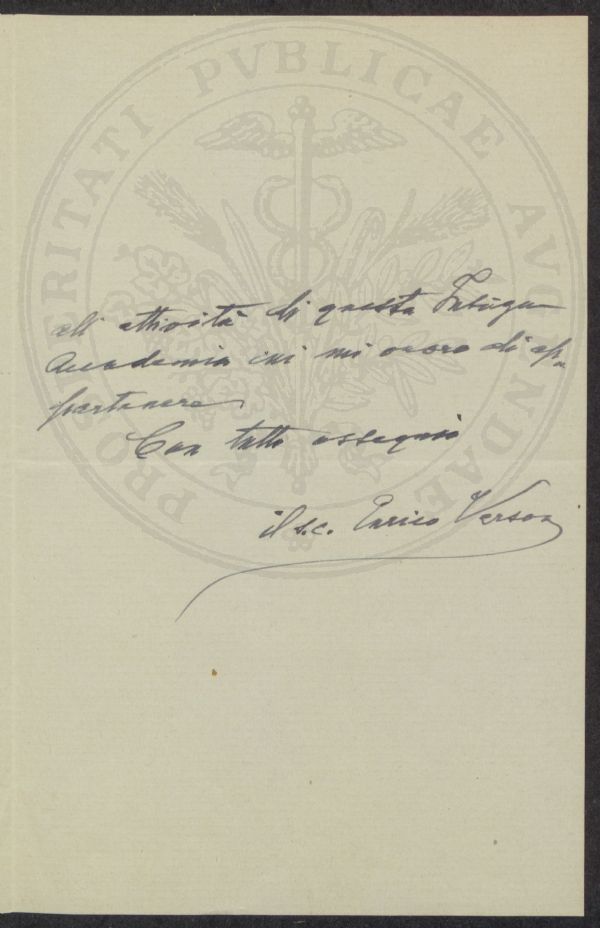 PROSPERITATI PVBLICAE AVGENDAE
all' attività di questa Insigne
Accademia cui mi onoro di ap-
partenere
Con tutto ossequio
il s.c. Enrico Verson